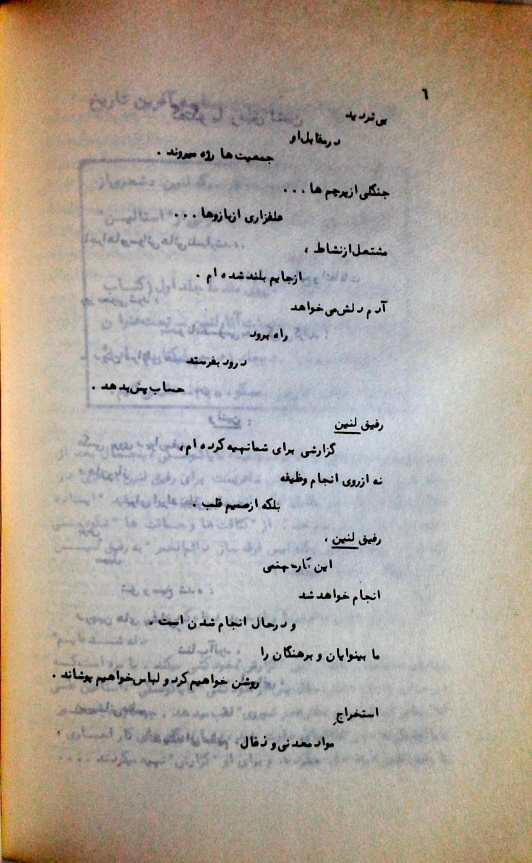 ٦
بی تردید
در مقابل او
جمعیت ها رژه میروند .
جنگلی از پرچم ها . . .
علفزاری از بازوها . . .
مشتعل از نشاط ،
از جایم بلند شده ام .
آدم دلش می خواهد
راه برود
درود بفرستد
حساب پس بدهد .
رفیق لنین
گزارشی برای شما تهیه کرده ام ،
نه از روی انجام وظیفه
بلکه از صمیم قلب .
رفیق لنین .
این کار جهنمی
انجام خواهد شد
و در حال انجام شدن است .
ما بینوایان و برهنگان را
روشن خواهیم کرد و لباس خواهیم پوشاند .
استخراج
مواد معدنی و ذغال